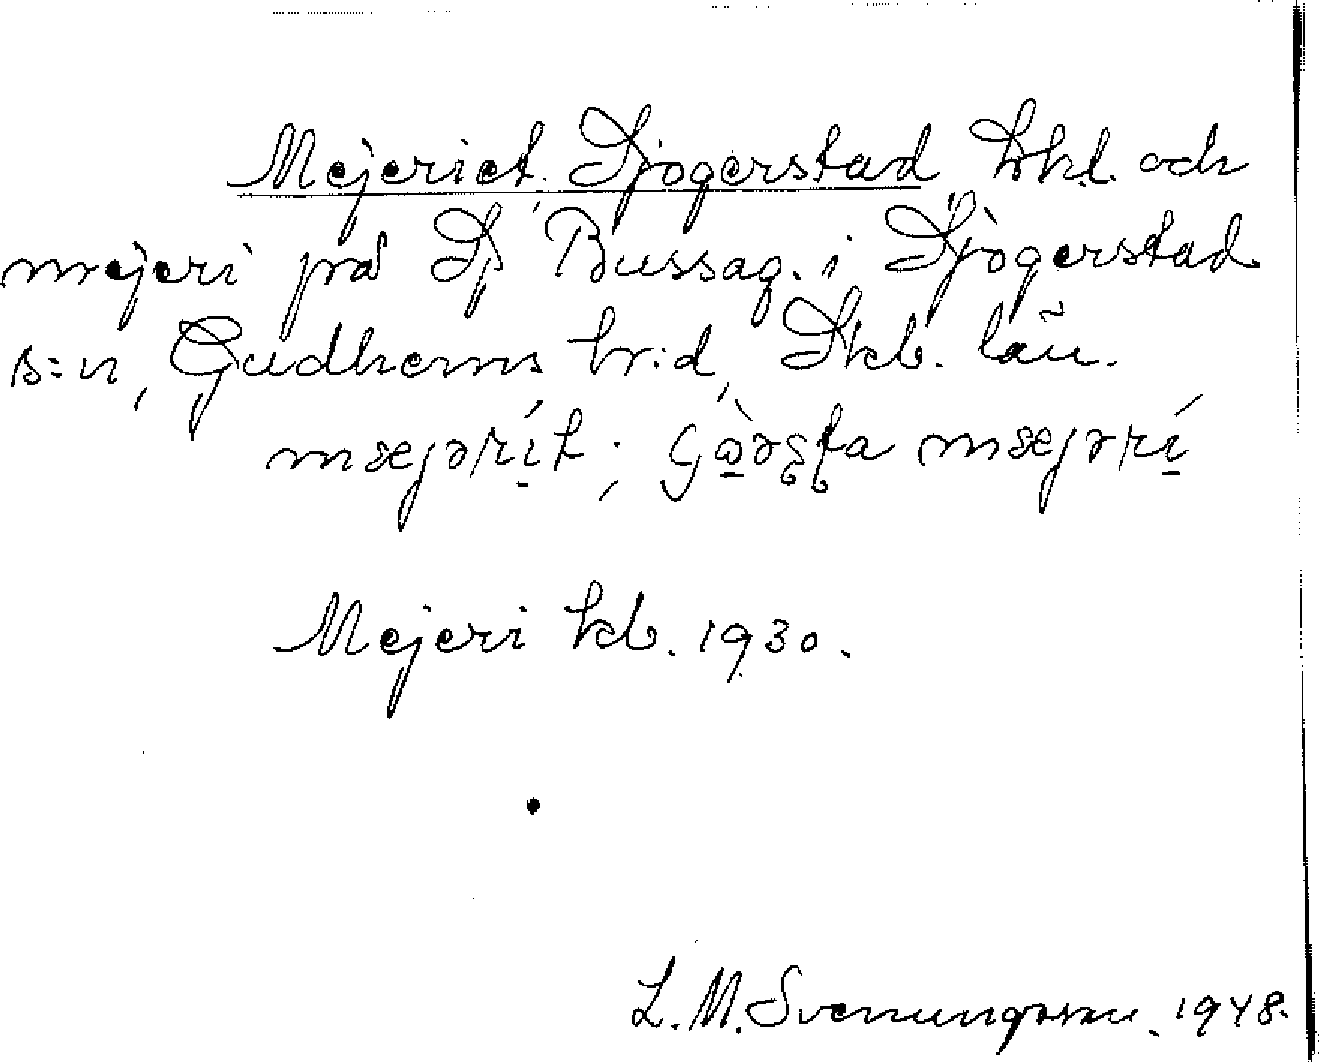 Mejeriet, Sjögerstad, bkl. och
mejeri på Sj Bussag. i Sjögerstad
s:n, Gudhems hr:d, Skb. län.
mæjərít ; Gòəʂʈa mæjərí
Mejeri kb. 1930.
L. M. Svenungsson. 1948.